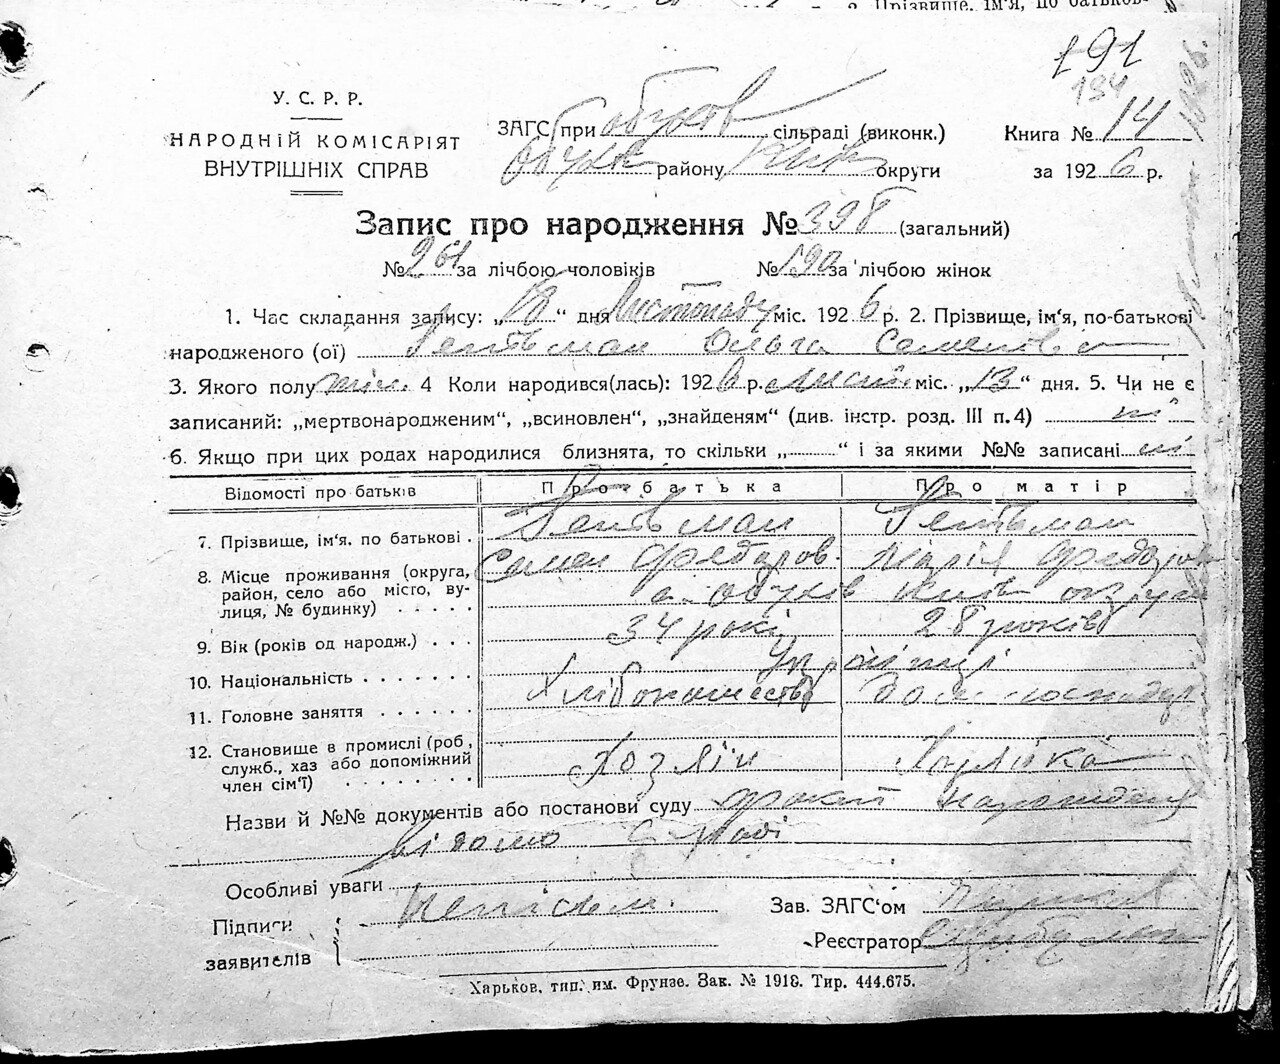 Прізвище, ім'я, по батьков-
191
194
У. С. Р. Р.
НАРОДНІЙ КОМІСАРІЯТ
ВНУТРІШНІХ СПРАВ
ЗАГС при Обухів сільраді (виконк.)
Книга № 14
району Київ округи
за 1926 р.
Запис про народження № 398 (загальний)
№ за лічбою чоловіків № 190 за лічбою жінок
1. Час складання запису: „18“ дня Листопаду міс. 1926 р. 2. Прізвище, ім'я, по-батькові
народженого (ої) Гентьман Ольга Семенівна
3. Якого полу жін. 4 Коли народився(лась): 1926 р. Лист. міс. „13“ дня. 5. Чи не є
записаний: „мертвонародженим“, „всиновлен“, „знайденям“ (див. інстр. розд. III п. 4) ні
6. Якщо при цих родах народилися близнята, то скільки „ “ і за якими №№ записані ні
Відомості про батьків Про батька Про матір
7. Прізвище, ім'я. по батькові . Гентьман Гентьман
Семен Марія
8. Місце проживання (округа,
район, село або місто, ву-
лиця, № будинку) . . . . . с. Обухів Київ округи
9. Вік (років од народж.) . . . 34 рокі 28 років
10. Національність . . . . . . . Українці
11. Головне заняття . . . . . . Хлібопашество дом.
12. Становище в промислі (роб.,
служб., хаз або допоміжний
член сім'ї) . . . . . . . . . Хозяїн Хазяйка
Назви й №№ документів або постанови суду факт народження
відомо с/раді
Особливі уваги
Підписи
заявителів
Зав. ЗАГС'ом
Реєстратор
Харьков, тип. им. Фрунзе. Зак. № 1918. Тир. 444.675.